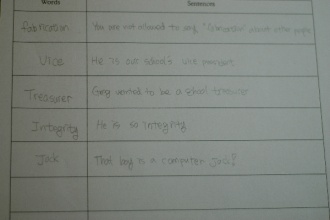 Words Sentences
fabrication You are not allowed to say "fabrication" about other people
Vice He is our school's vice president
Treasurer Greg wanted to be a school treasurer
Integrity He is so integrity
Jock That boy is a computer jock?